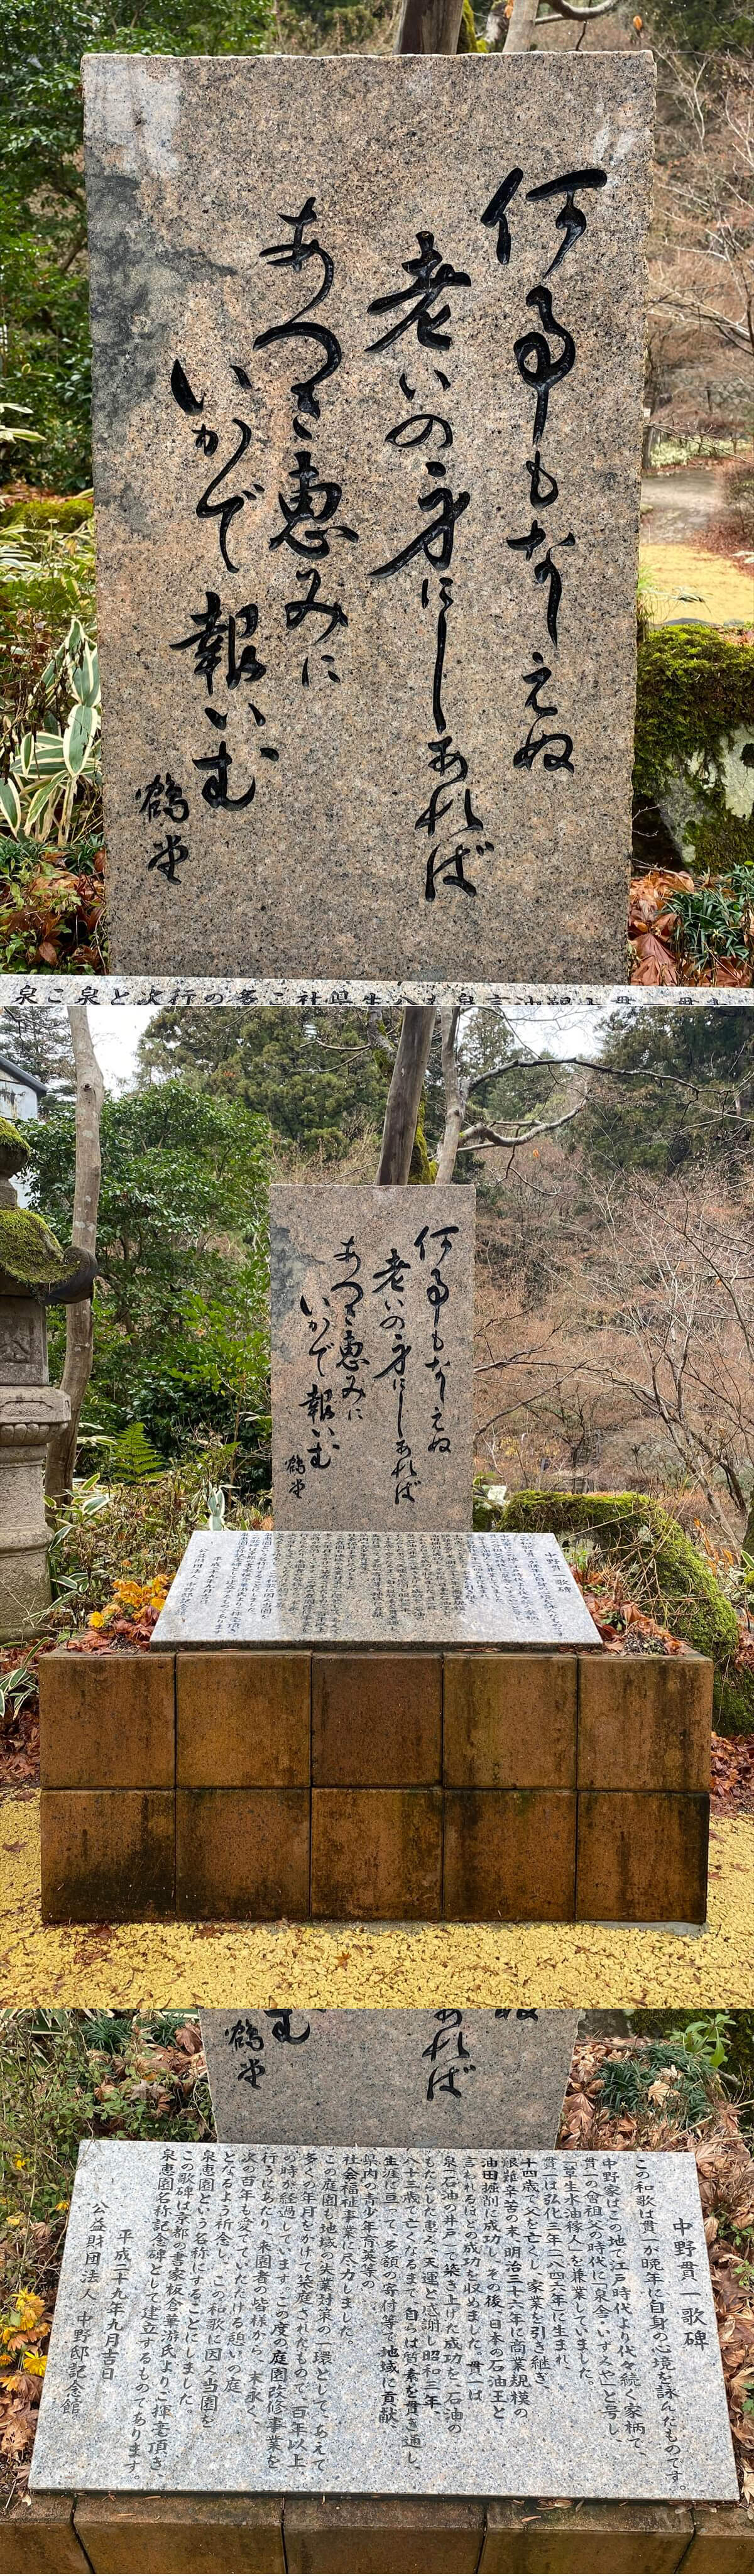 何事もなしえぬ
老いの身にしあれば
あつき恵みに
いかで報いむ
鶴堂
中野貫一歌碑
この和歌は貫一が晩年に自身の心境を詠んだものです。
中野家はこの地で江戸時代より代々続く家柄で、
貫一の曾祖父の時代に「泉舎・いずみや」と号し、
「草生水油稼人」を兼業していました。
貫一は弘化三年(一八四六年)に生まれ、
十四歳で父を亡くし、家業を引き継ぎ、
艱難辛苦の末、明治三十六年に商業規模の
油田掘削に成功し、その後、日本の石油王と
言われるほどの成功を収めました。貫一は
泉(石油の井戸)で築き上げた成功を、石油の
もたらした恵み、天運と感謝し昭和三年
八十三歳で亡くなるまで、自らは質素を貫き通し、
生涯に亘って、多額の寄付等で地域に貢献、
県内の青少年育英等の
社会福祉事業に尽力しました。
この庭園も地域の失業対策の一環として、あえて
多くの年月をかけて築庭されたもので、百年以上
の時が経過しています。この度の庭園改修事業を
行うにあたり、来園者の皆様から、末永く、
次の百年も愛でていただける憩いの庭
となるよう祈念し、この和歌に因み当園を
泉恵園という名称にすることにしました。
この歌碑は京都の書家板倉華游氏よりご揮毫頂き、
泉恵園名称記念碑として建立するものであります。
平成二十九年九月吉日
公益財団法人 中野邸記念館